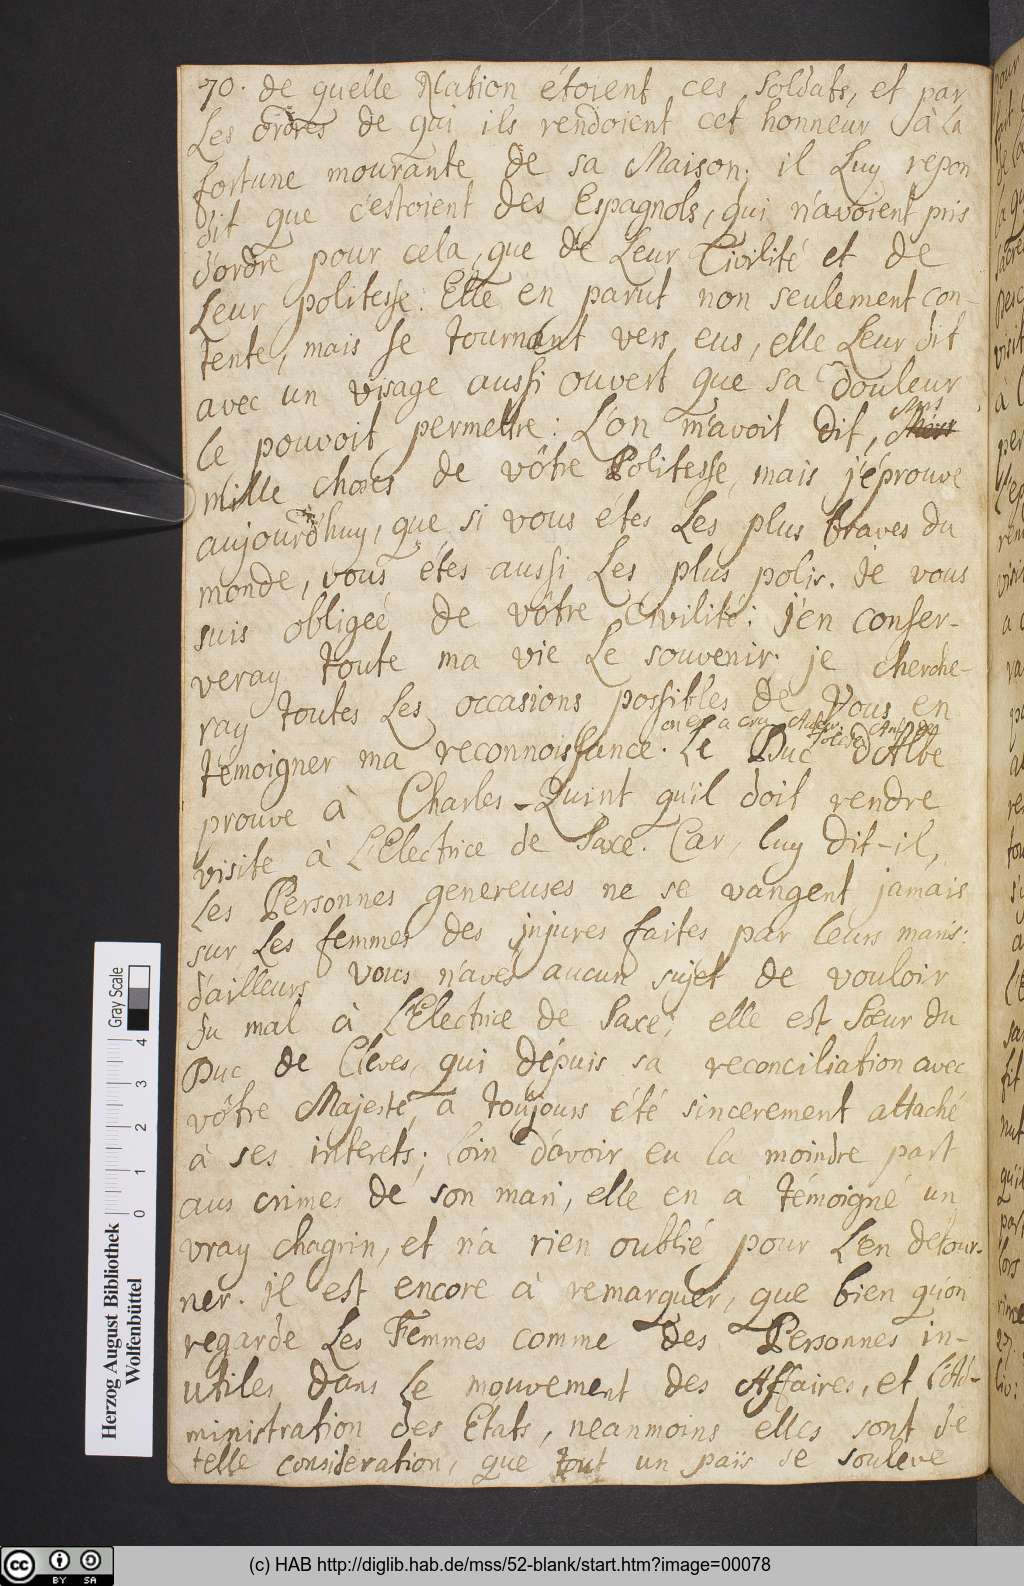 70. de quelle Nation étoient ces soldats, et par
Les ordres de qui ils rendoient cet honneur à la
fortune mourante de sa Maison; il Luy repon
dit que c'estoient des Espagnols, qui n'avoient pris
d'ordre pour cela, que de Leur Civilité et de
Leur politesse. Elle en parut non seulement con-
tente, mais se tournant vers eus, elle Leur dit
avec un visage aussi ouvert que sa douleur
Le pouvoit permettre: L'on m'avoit dit,
mille choses de vôtre Politesse, mais j'éprouve
aujourd'huy, que si vous étes Les plus braves du
monde, vous étes aussi Les plus polis. Je vous
suis obligeé de vôtre Civilité: j'en conser-
veray toute ma vie Le souvenir. je cherche-
ray toutes Les occasions possibles de Vous en
on en a cru
témoigner ma reconnoissance. Le Duc d'Albe
prouve à Charles-Quint qu'il doit rendre
visite à L'Electrice de Saxe. Car, luy dit-il,
Les Personnes genereuses ne se vangent jamais
sur Les femmes des injures faites par leurs maris:
d'ailleurs vous n'aves aucun sujet de vouloir
du mal à L'Electrice de Saxe; elle est Sœur du
Duc de Cleves, qui depuis sa reconciliation avec
vôtre Majesté, a toujours été sincerement attaché
à ses interets; loin d'avoir eu la moindre part
aus crimes de son mari, elle en a témoigné un
vray chagrin, et n'a rien oublié pour L'en detour-
ner. Il est encore à remarquer, que bien qu'on
regarde Les Femmes comme des Personnes in-
utiles dans Le mouvement des Affaires, et l'Ad-
ministration des Etats, neanmoins elles sont de
telle consideration, que tout un païs se souleve
Herzog August Bibliothek
Wolfenbüttel
Gray Scale
0 1 2 3 4
cc BY SA
(c) HAB http://diglib.hab.de/mss/52-blank/start.htm?image=00078